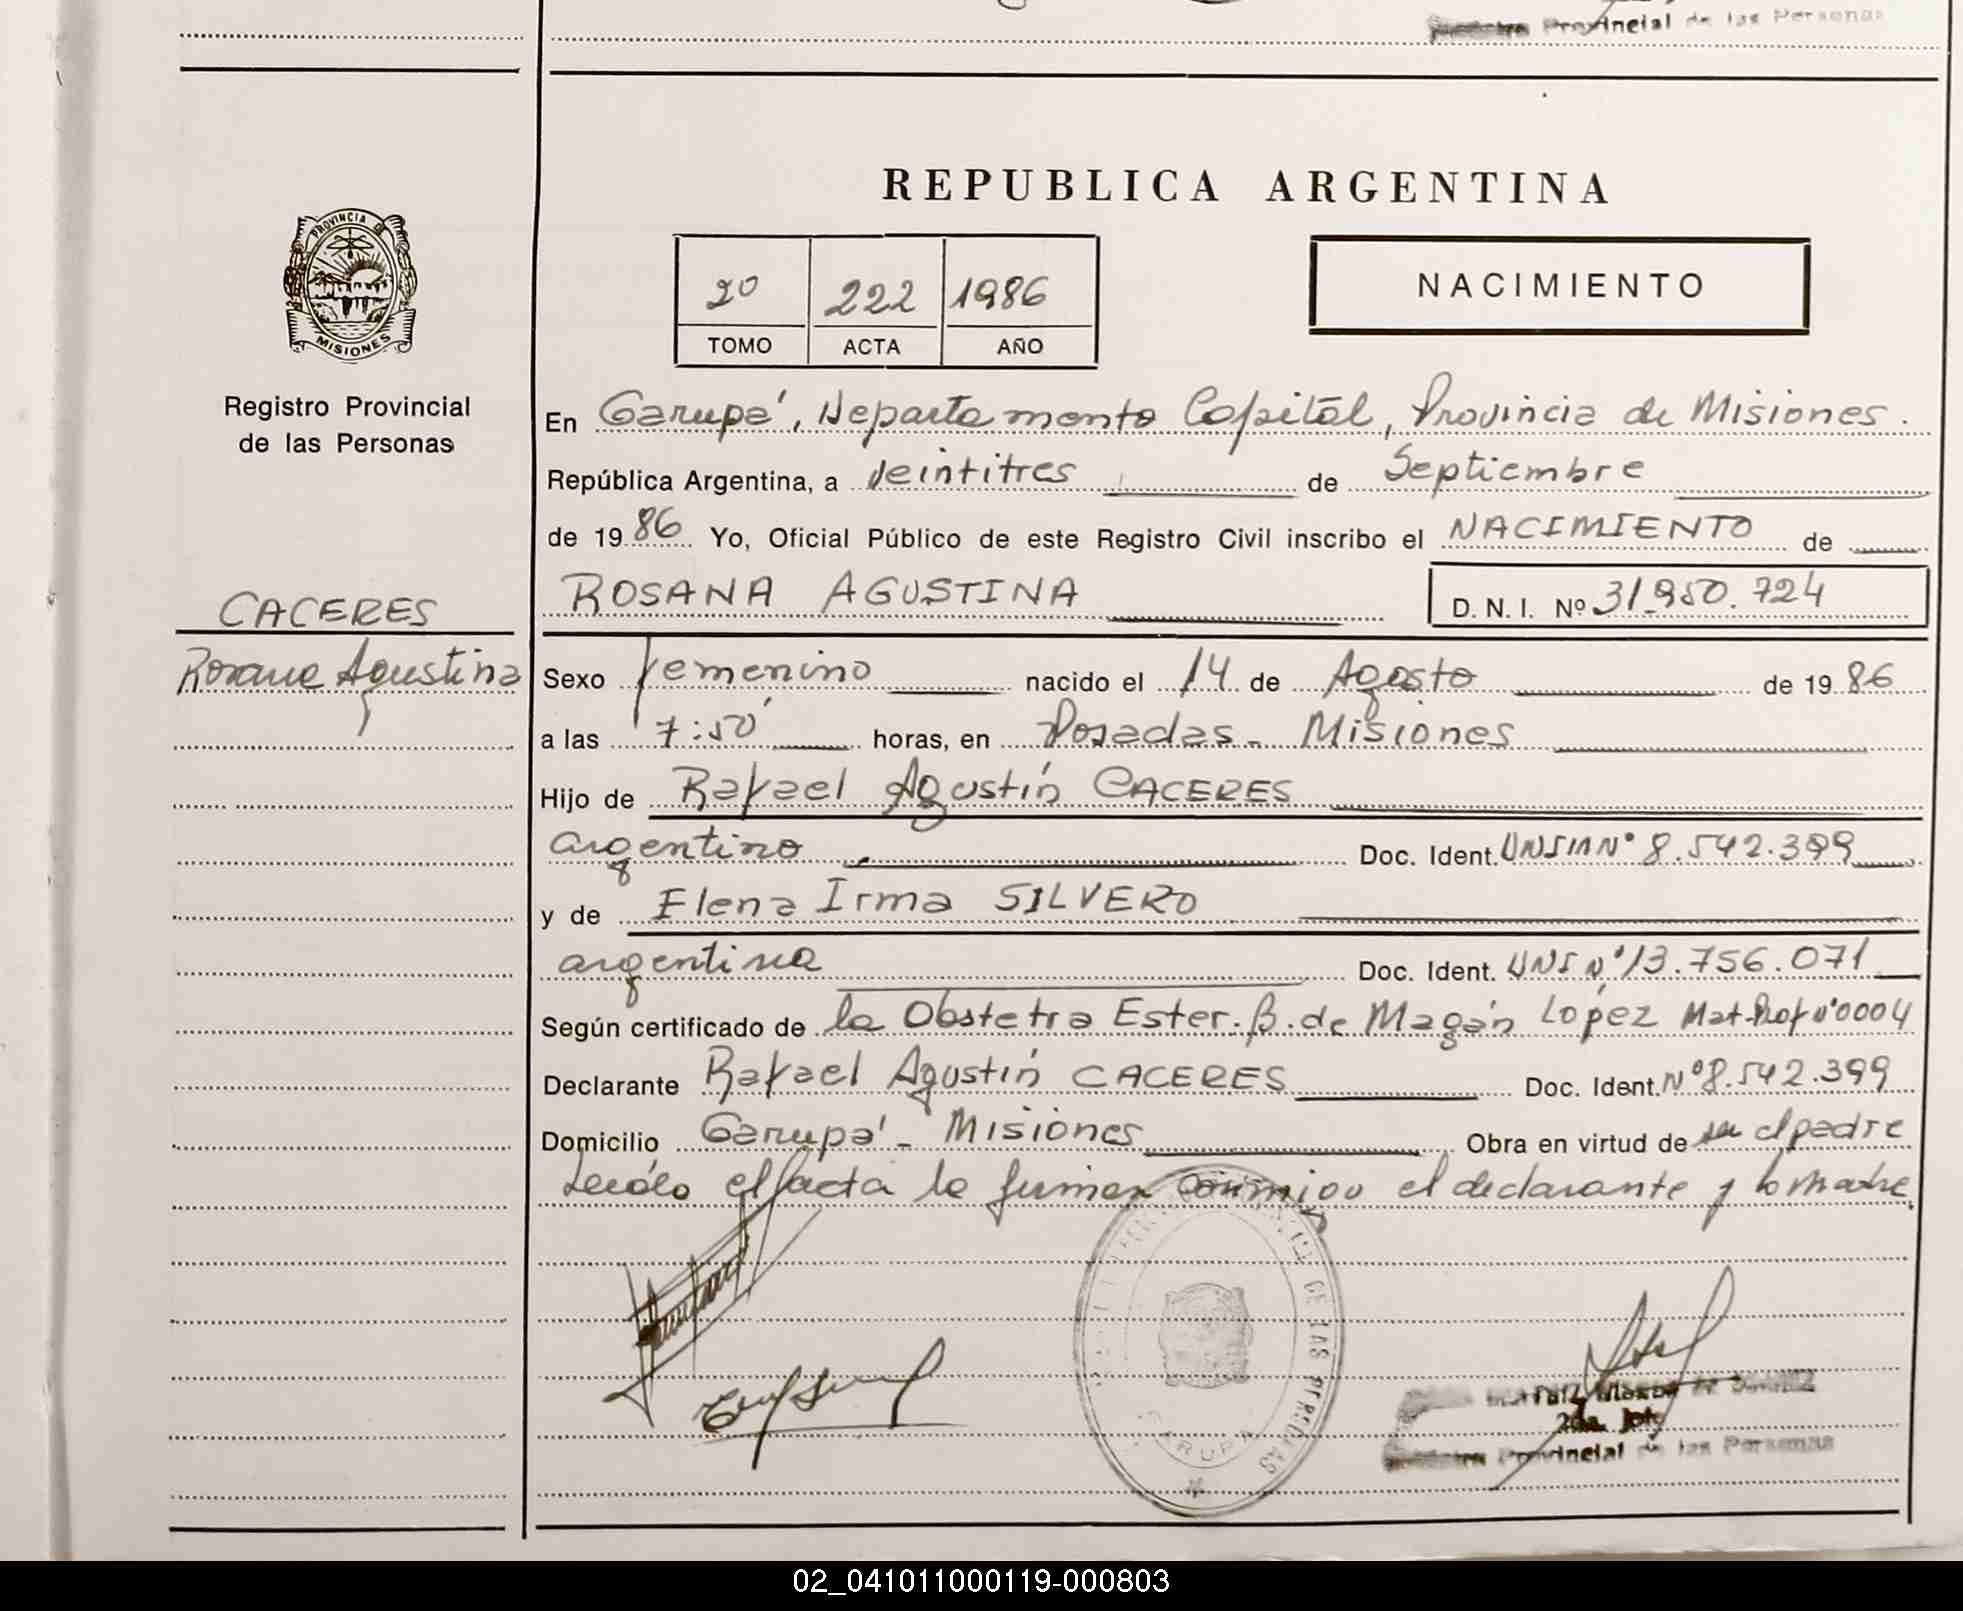 Provincial de las Personas
REPUBLICA ARGENTINA
PROVINCIA DE
MISIONES
Registro Provincial
de las Personas
2º 222 1986
TOMO ACTA AÑO
NACIMIENTO
En Garupá, Departamento Capital, Provincia de Misiones.
República Argentina, a Veintitres de Septiembre
de 1986 Yo, Oficial Público de este Registro Civil inscribo el NACIMIENTO de
ROSANA AGUSTINA D. N. I. Nº 31.950.724
CACERES
Rosana Agustina
Sexo femenino nacido el 14 de Agosto de 1986
a las 7:50 horas, en Posadas - Misiones
Hijo de Rafael Agustín CACERES
argentino Doc. Ident. Nº 8.542.399
y de Elena Irma SILVERO
argentina Doc. Ident. Nº 13.756.071
Según certificado de la Obstetra Ester. B. de Magán López Mat. Prof Nº 0004
Declarante Rafael Agustín CACERES Doc. Ident. Nº 8.542.399
Domicilio Garupá - Misiones Obra en virtud de ser el padre
Leída el acta la firman conmigo el declarante y la madre
DE LAS PERSONAS
GARUPA
2da. Jefe
Provincial de las Personas
02_041011000119-000803